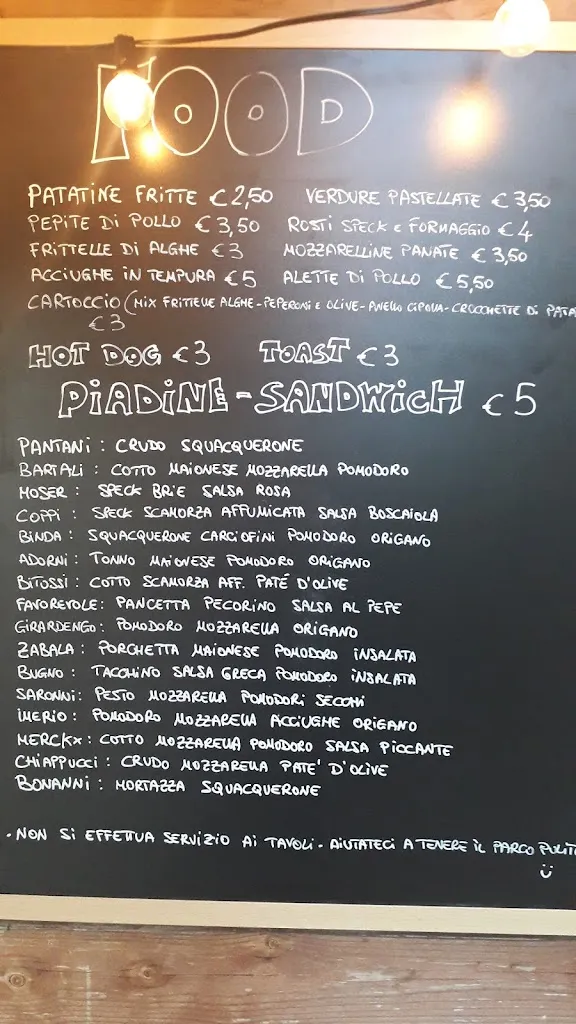 FOOD
PATATINE FRITTE € 2,50 VERDURE PASTELLATE € 3,50
PEPITE DI POLLO € 3,50 ROSTI SPECK E FORMAGGIO € 4
FRITTELLE DI ALGHE € 3 MOZZARELLINE PANATE € 3,50
ACCIUGHE IN TEMPURA € 5 ALETTE DI POLLO € 5,50
CARTOCCIO (MIX FRITTELLE ALGHE - PEPERONI E OLIVE - ANELLO CIPOLLA - CROCCHETTE DI PATA
€ 3
HOT DOG € 3 TOAST € 3
PIADINE - SANDWICH € 5
PANTANI : CRUDO SQUACQUERONE
BARTALI : COTTO MAIONESE MOZZARELLA POMODORO
MOSER : SPECK BRIE SALSA ROSA
COPPI : SPECK SCAMORZA AFFUMICATA SALSA BOSCAIOLA
BINDA : SQUACQUERONE CARCIOFINI POMODORO ORIGANO
ADORNI : TONNO MAIONESE POMODORO ORIGANO
BITOSSI : COTTO SCAMORZA AFF. PATÉ D'OLIVE
FAVOREVOLE : PANCETTA PECORINO SALSA AL PEPE
GIRARDENGO : POMODORO MOZZARELLA ORIGANO
ZABALA : PORCHETTA MAIONESE POMODORO INSALATA
BUGNO : TACCHINO SALSA GRECA POMODORO INSALATA
SARONNI : PESTO MOZZARELLA POMODORI SECCHI
IMERIO : POMODORO MOZZARELLA ACCIUGHE ORIGANO
MERCKX : COTTO MOZZARELLA POMODORO SALSA PICCANTE
CHIAPPUCCI : CRUDO MOZZARELLA PATE' D'OLIVE
BONANNI : MORTAZZA SQUACQUERONE
- NON SI EFFETTUA SERVIZIO AI TAVOLI - AIUTATECI A TENERE IL PARCO PULIT